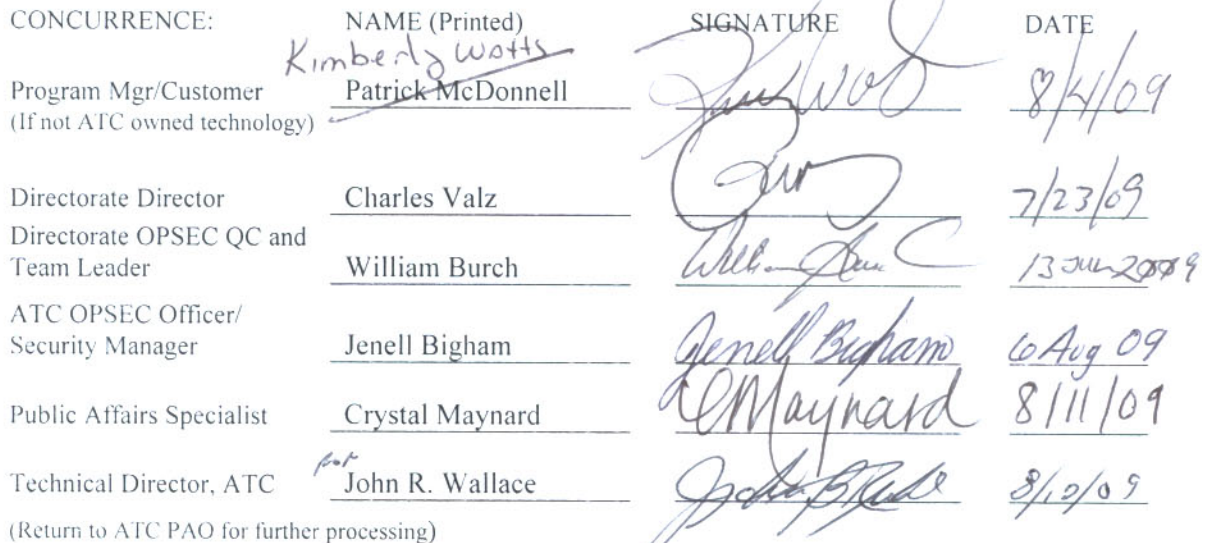 CONCURRENCE: NAME (Printed) SIGNATURE DATE
Kimberly Watts
Program Mgr/Customer Patrick McDonnell 8/4/09
(If not ATC owned technology)
Directorate Director Charles Valz 7/23/09
Directorate OPSEC QC and
Team Leader William Burch 2009
ATC OPSEC Officer/
Security Manager Jenell Bigham Jenell Bigham 6 Aug 09
Public Affairs Specialist Crystal Maynard CMaynard 8/11/09
for
Technical Director, ATC John R. Wallace 8/12/09
(Return to ATC PAO for further processing)